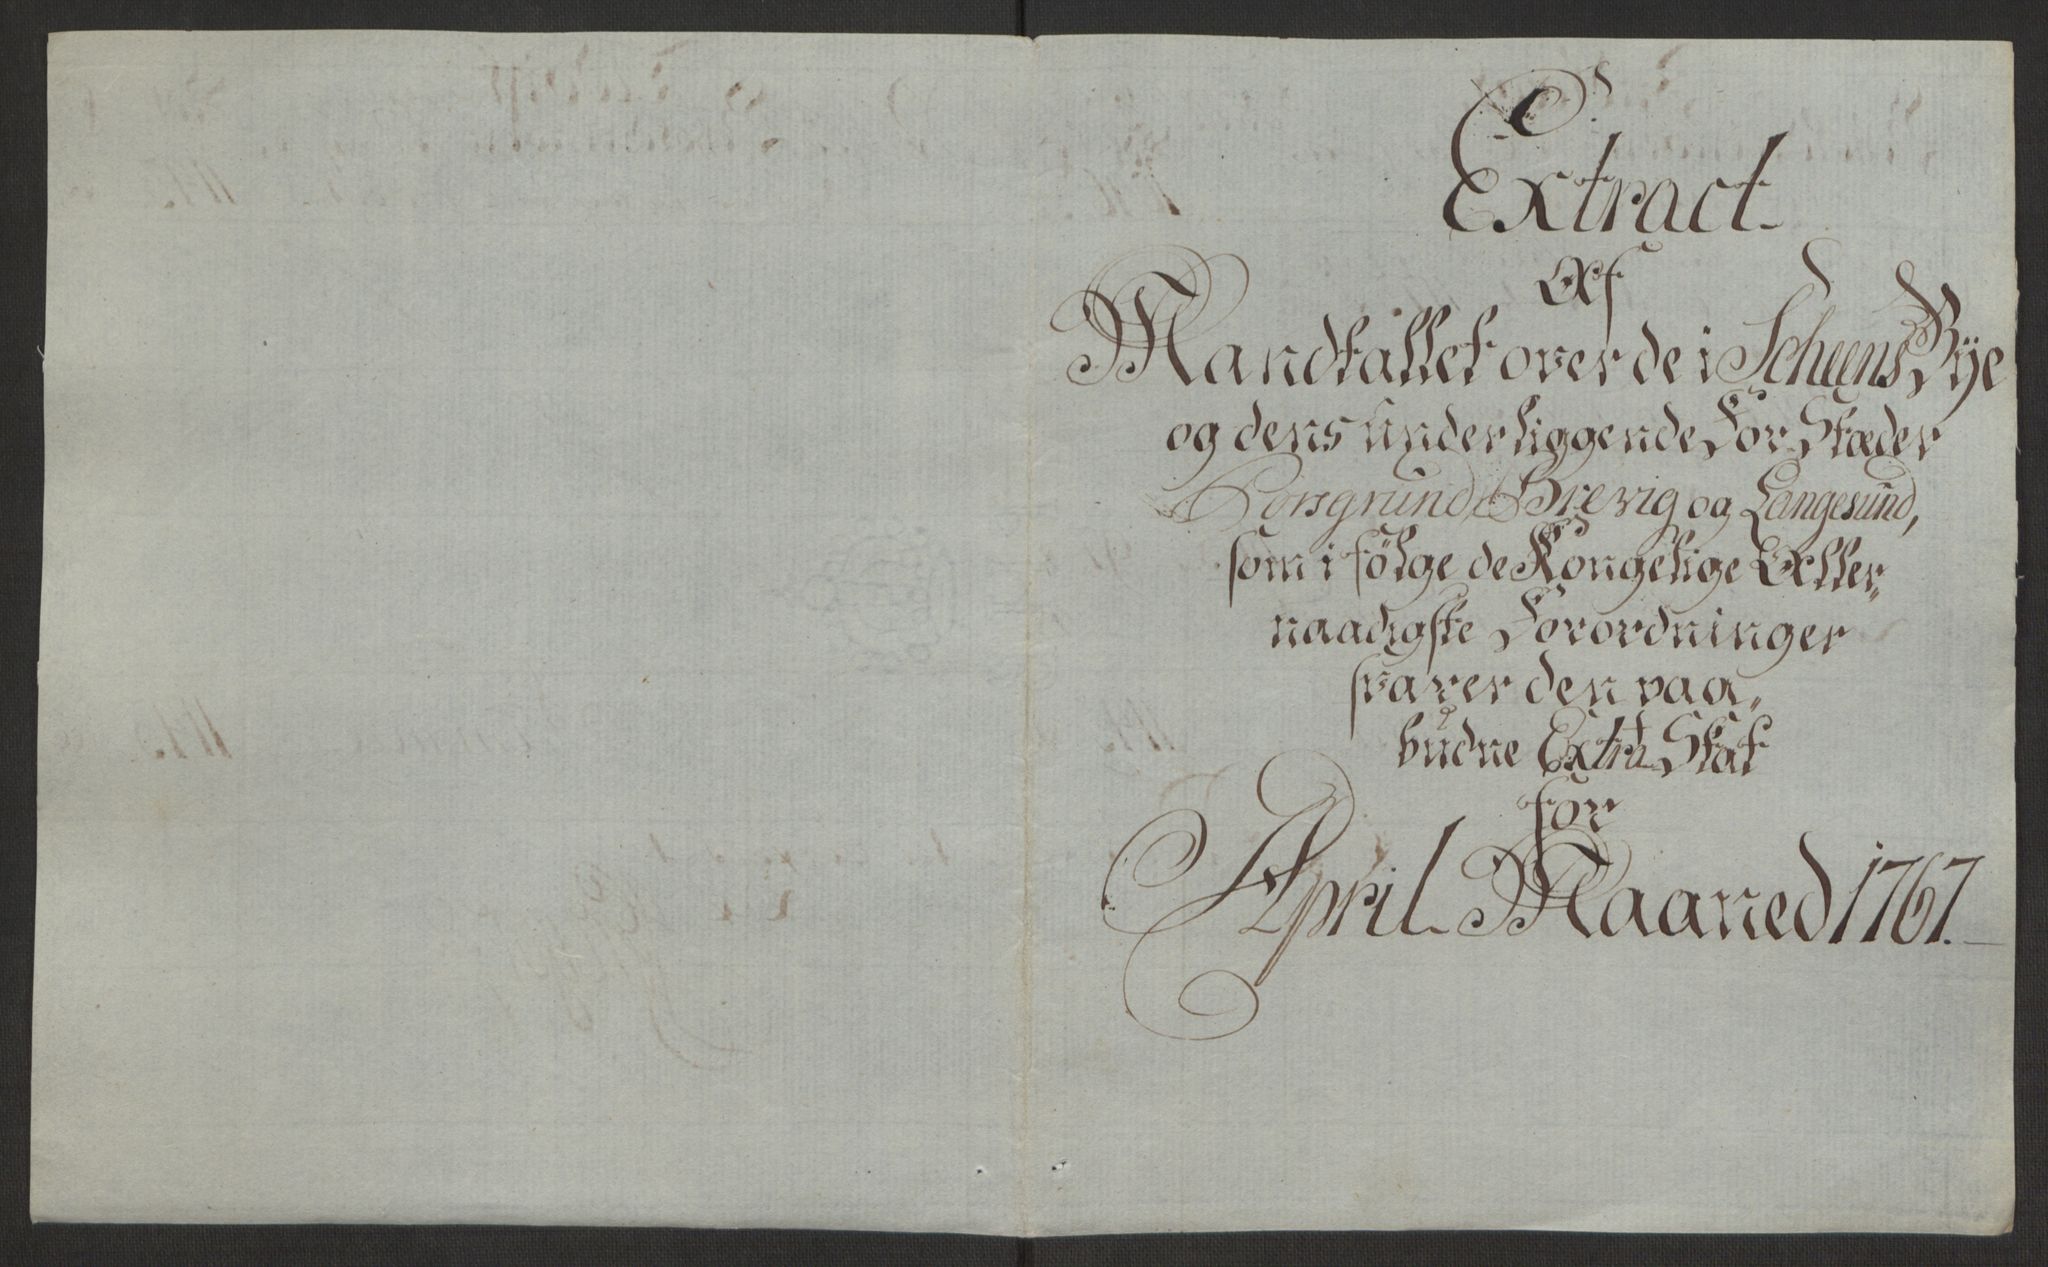 Extract
Af
Mandtallet over de i Scheens Bÿe
og dens underliggende For Stæder
Porsgrund, Brevig og Langesund,
som i fölge de Kongelige Aller,,
naadigste Forordninger
svarer den paa,,
budne Extra Skat
for
April Maaned 1767.